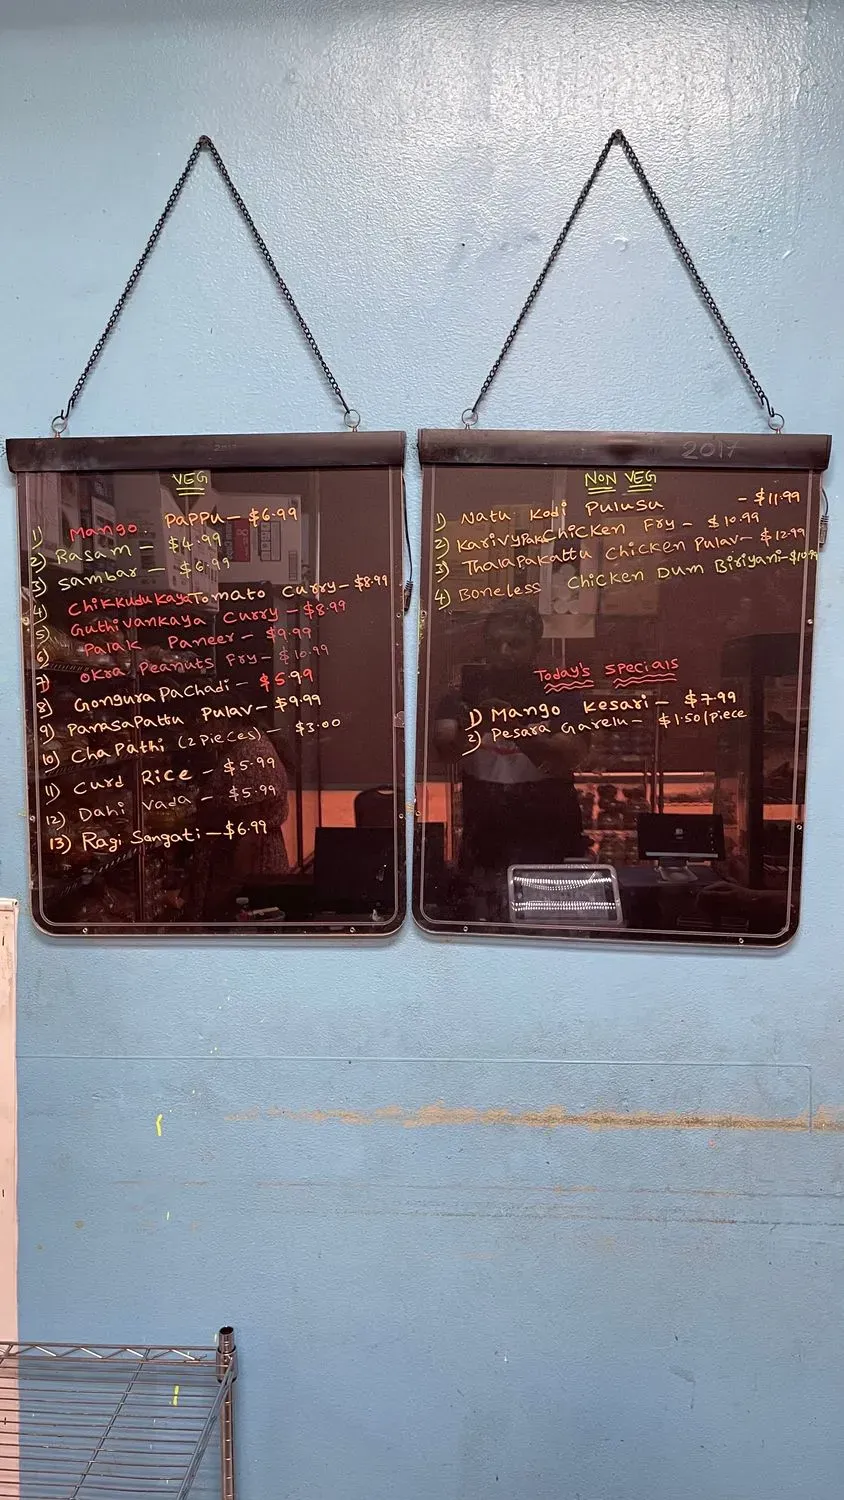 VEG
1) Mango Pappu - $6.99
2) Rasam - $4.99
3) Sambar - $6.99
4) Chikkudukaya Tomato Curry - $8.99
5) Guthivankaya Curry - $8.99
6) Palak Paneer - $9.99
7) Okra Peanuts Fry - $10.99
8) Gongura Pachadi - $5.99
9) Panasapattu Pulav - $9.99
10) Chapathi (2 pieces) - $3.00
11) Curd Rice - $5.99
12) Dahi Vada - $5.99
13) Ragi Sangati - $6.99
2017
NON VEG
1) Natu Kodi Pulusu - $11.99
2) Karivypak Chicken Fry - $10.99
3) Thalapakattu Chicken Pulav - $12.99
4) Boneless Chicken Dum Biriyani -
Today's Specials
1) Mango Kesari - $7.99
2) Pesara Garelu - $1.50/piece